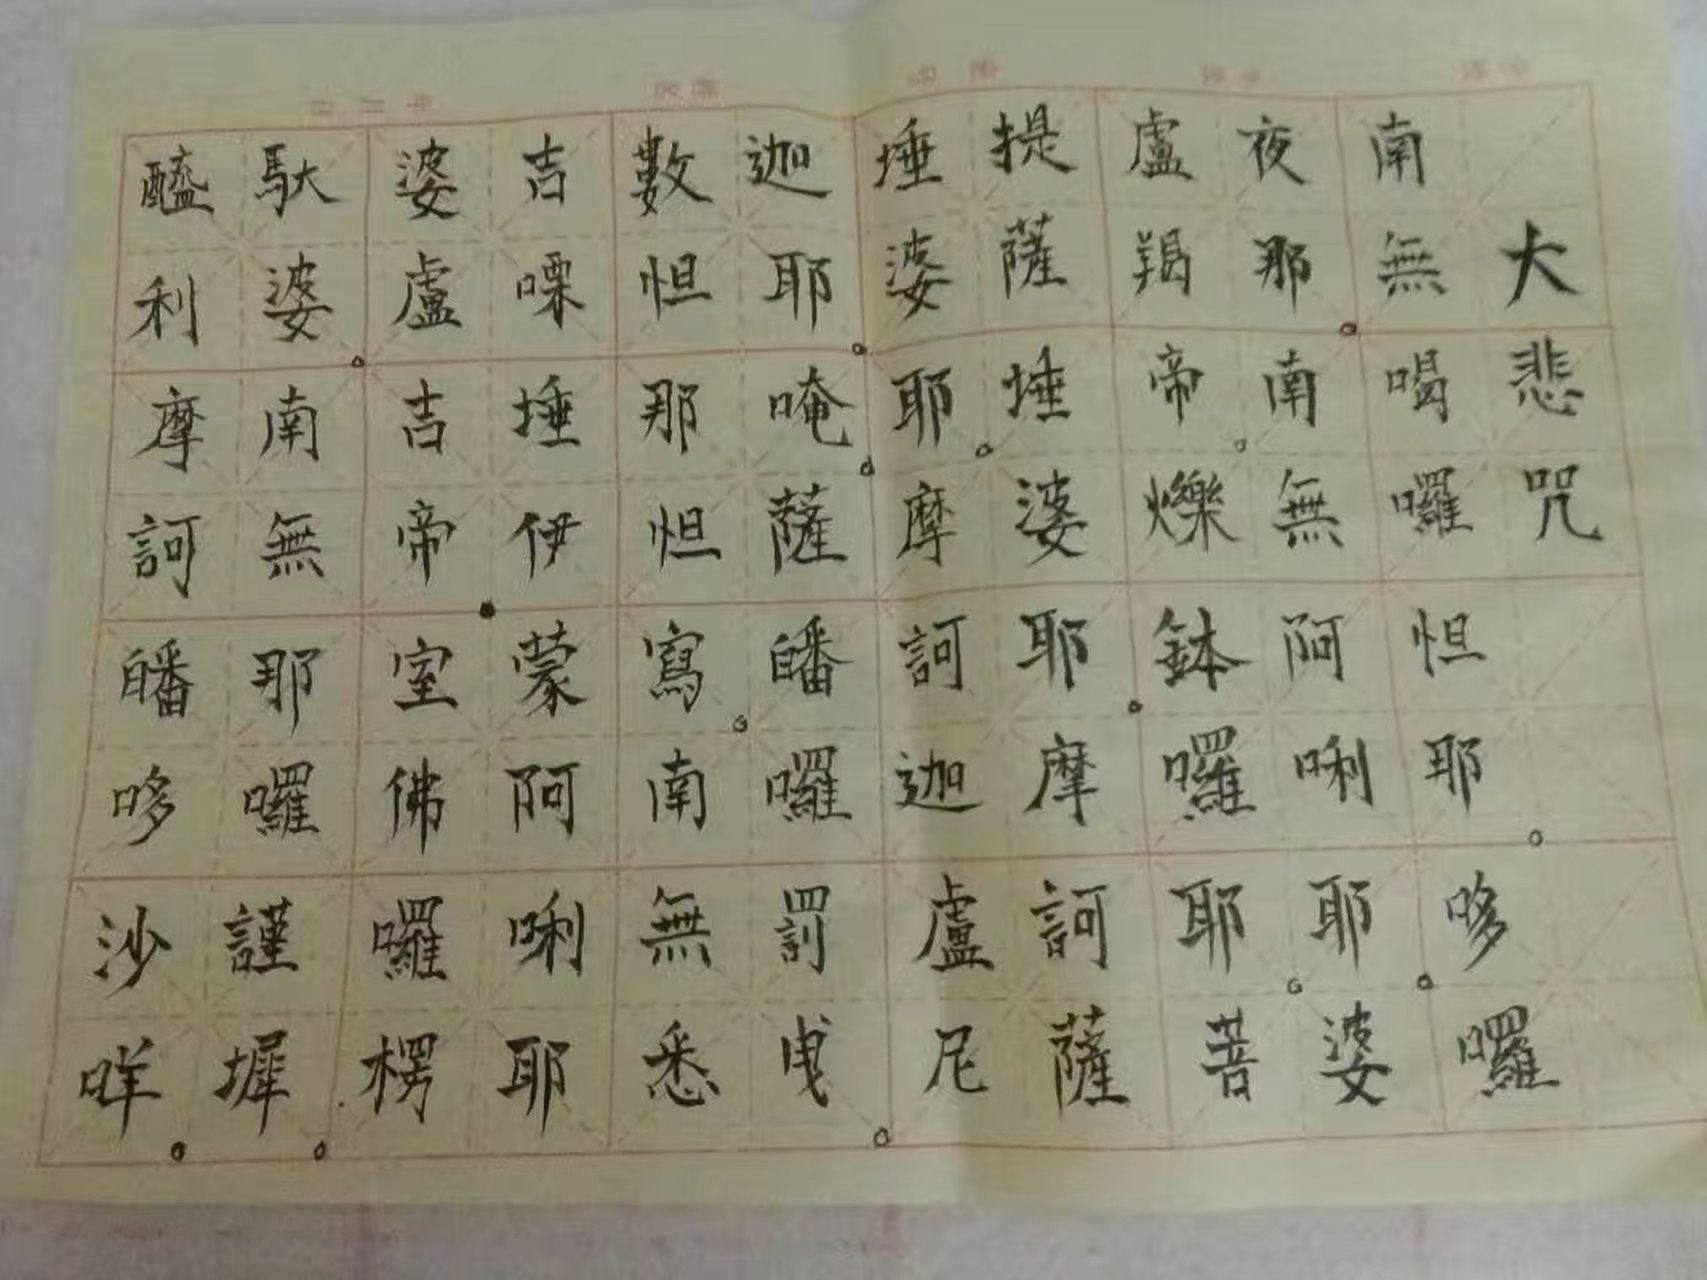 大悲咒
南無喝囉怛耶。哆囉
夜那。南無阿唎耶。婆
盧羯帝。爍鉢囉耶。菩
提薩埵婆耶。摩訶薩
埵婆耶。摩訶迦盧尼
迦耶。唵。薩皤囉罰曳。
數怛那怛寫。南無悉
吉嘌埵伊蒙阿唎耶
婆盧吉帝。室佛囉楞
馱婆。南無那囉謹墀。
醯利摩訶皤哆沙咩。